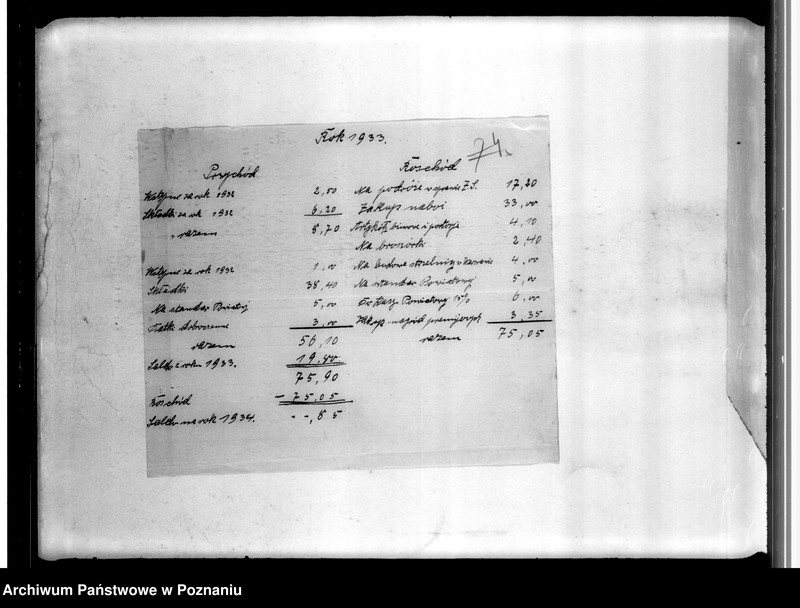 Rok 1933.
74.
Przychód
Wstępne za rok 1932 2,50
Składki za rok 1932 6,20
razem 8,70
Wstępne za rok 1932 1,00
Składki 38,40
Na standar Powiatowy 5,00
3,00
razem 56,10
Saldo z roku 1933. 19,80
75,90
Rozchód - 75,05
Saldo na rok 1934. - -,85
Rozchód
Na podróże w sprawie Z.S. 17,20
Zakup naboi 33,00
Artykuły biurowe i portorja 4,10
Na broszurki 2,40
Na budowę strzelnicy 4,00
Na standar Powiatowy 5,00
Powiatowy 15% 6,00
Zakup 3,35
razem 75,05
Archiwum Państwowe w Poznaniu